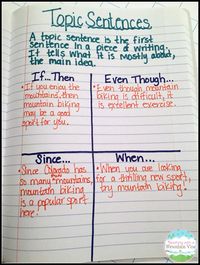 Topic Sentences
A topic sentence is the first
sentence in a piece of writing.
It tells what it is mostly about,
the main idea.
If...Then
• If you enjoy the
mountains, then
mountain biking
may be a good
sport for you.
Even Though...
• Even though mountain
biking is difficult, it
is excellent exercise.
Since...
• Since Colorado has
so many mountains,
mountain biking
is a popular sport
here!
When...
• When you are looking
for a thrilling new sport,
try mountain biking!
Mountain View